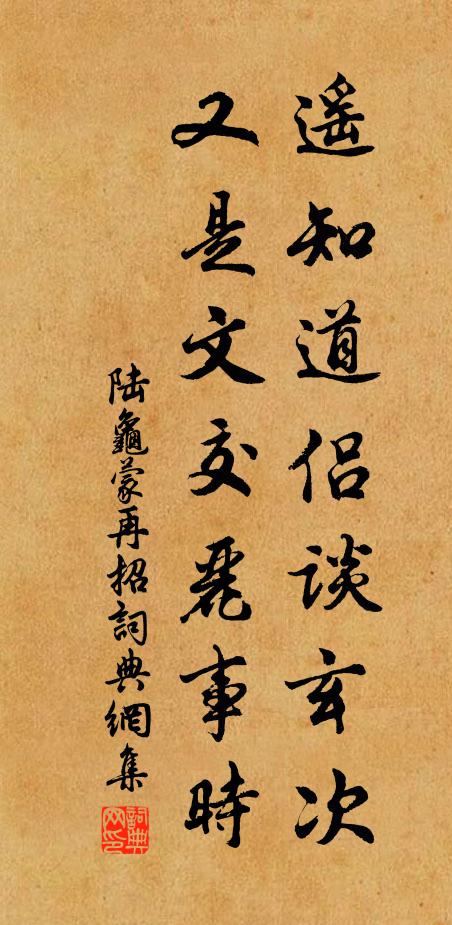 遥知道侣谈玄次
又是文交麗事時
陆龜蒙再招詞典網集
詞典网印